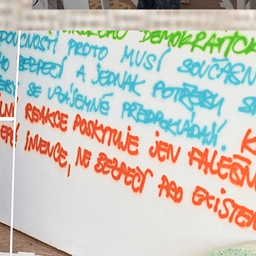 DEMOKRATICK
POCTIVOSTI PROTO MUSÍ SOUČASN
BEZPEČÍ A JEDNAK POTŘEBU S
SE VZÁJEMNĚ PŘEDPOKLÁDAJÍ. K
LNÍ REAKCE POSKYTUJE JEN FALEŠN
INVENCE, NE BEZPEČÍ PRO EXISTEN